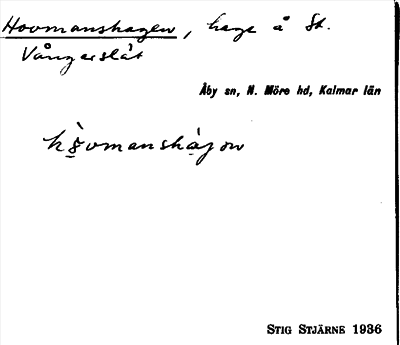 Hovmanshagen, hage å St.
Vångerslät
Åby sn, N. Möre hd, Kalmar län
STIG STJÄRNE 1936